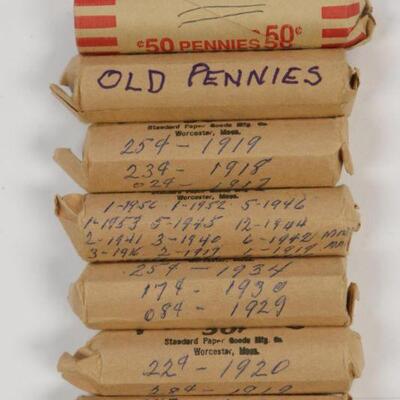 ¢50 PENNIES 50¢
OLD PENNIES
Standard Paper Goods Mfg. Co.
Worcester, Mass.
25¢ - 1919
23¢ - 1918
02¢ - 1917
Worcester, Mass.
1-1956 1-1952 5-1946
1-1953 5-1945 12-1944
2-1941 3-1940 6-1942
3-1916 2-1919 1-1919
25¢ - 1934
17¢ - 1930
08¢ - 1929
Standard Paper Goods Mfg. Co.
Worcester, Mass.
22¢ - 1920
28¢ - 1919